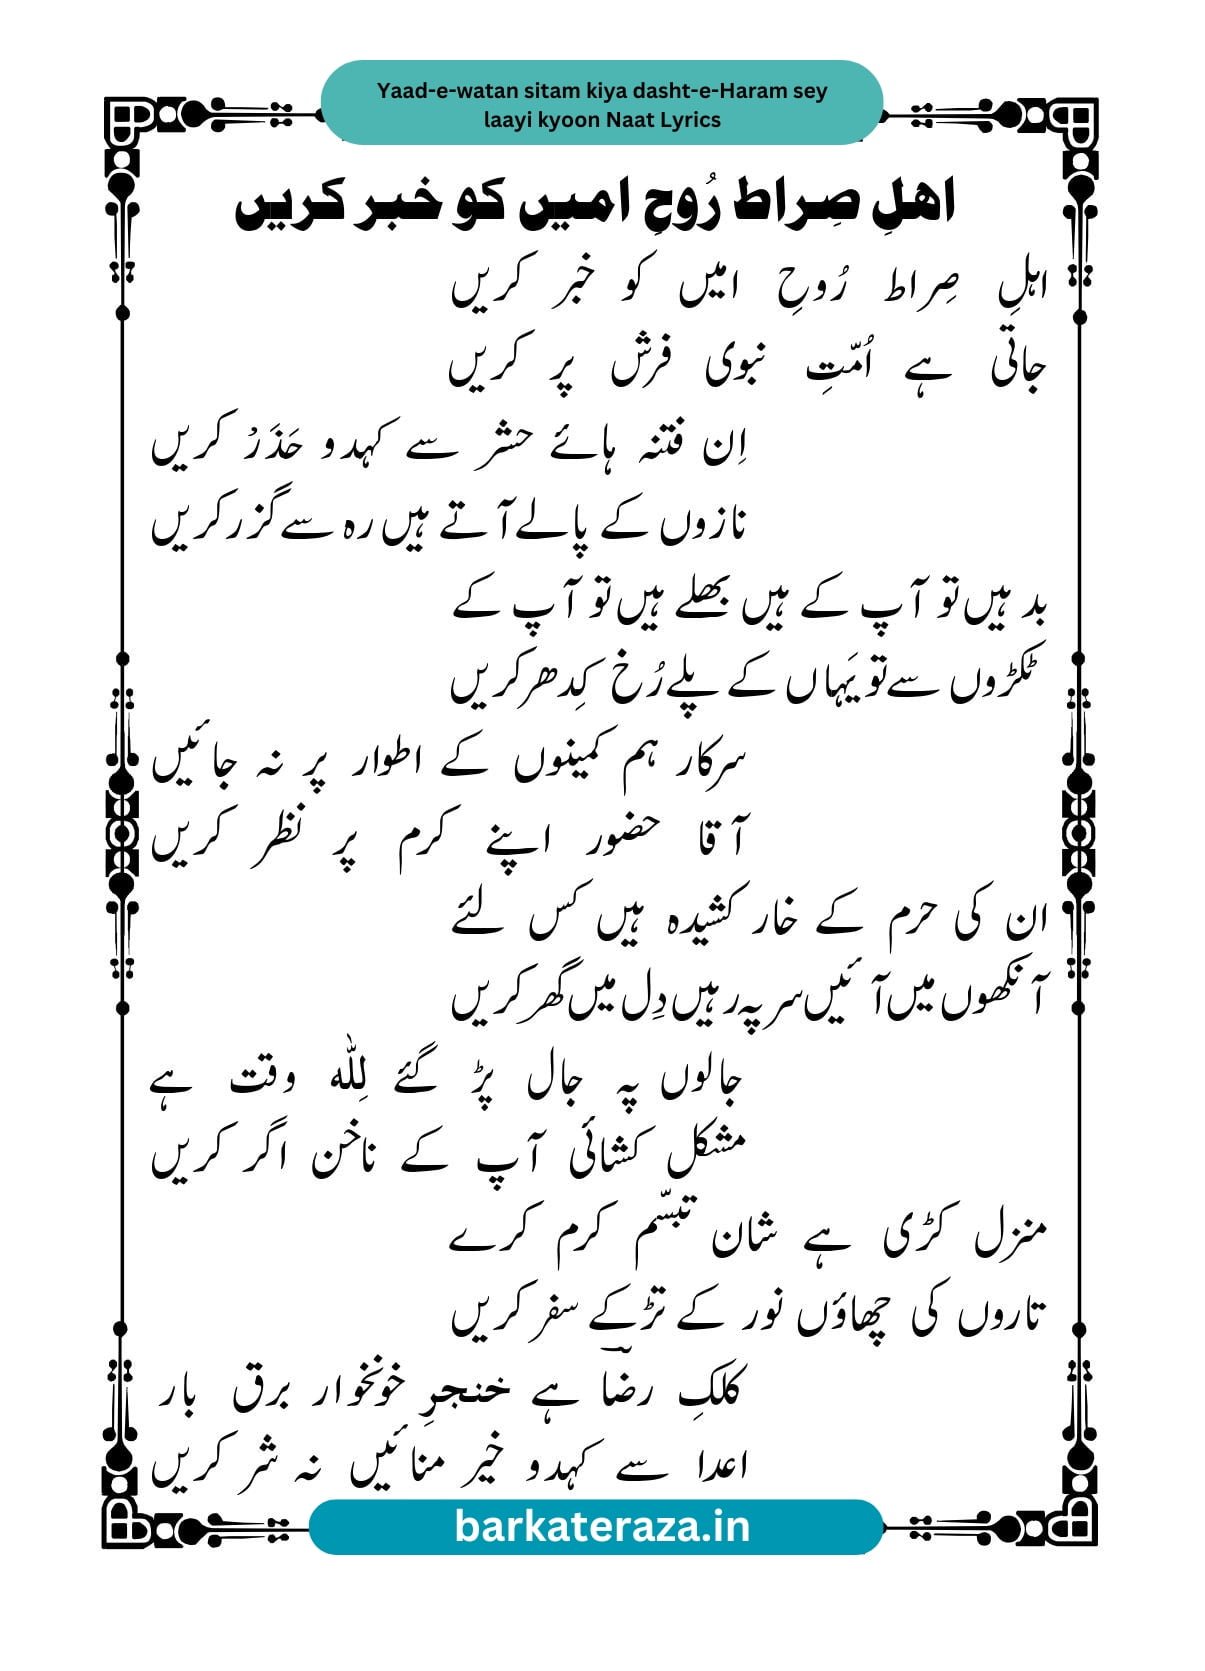 Yaad-e-watan sitam kiya dasht-e-Haram sey
laayi kyoon Naat Lyrics
اہلِ صِراط رُوحِ امیں کو خبر کریں
اہلِ صِراط رُوحِ امیں کو خبر کریں
جاتی ہے اُمّتِ نبوی فرش پر کریں
اِن فتنہ ہائے حشر سے کہدو حَذَرْ کریں
نازوں کے پالے آتے ہیں رہ سے گزر کریں
بد ہیں تو آپ کے ہیں بھلے ہیں تو آپ کے
ٹکڑوں سے تو یَہاں کے پلے رُخ کِدھر کریں
سرکار ہم کمینوں کے اطوار پر نہ جائیں
آقا حضور اپنے کرم پر نظر کریں
ان کی حرم کے خار کشیدہ ہیں کس لئے
آنکھوں میں آئیں سر پہ رہیں دِل میں گھر کریں
جالوں پہ جال پڑ گئے لِلّٰہ وقت ہے
مشکل کشائی آپ کے ناخن اگر کریں
منزل کڑی ہے شان تبسّم کرم کرے
تاروں کی چھاؤں نور کے تڑکے سفر کریں
کلکِ رضاؔ ہے خنجرِ خونخوار برق بار
اعدا سے کہدو خیر منائیں نہ شر کریں
barkateraza.in